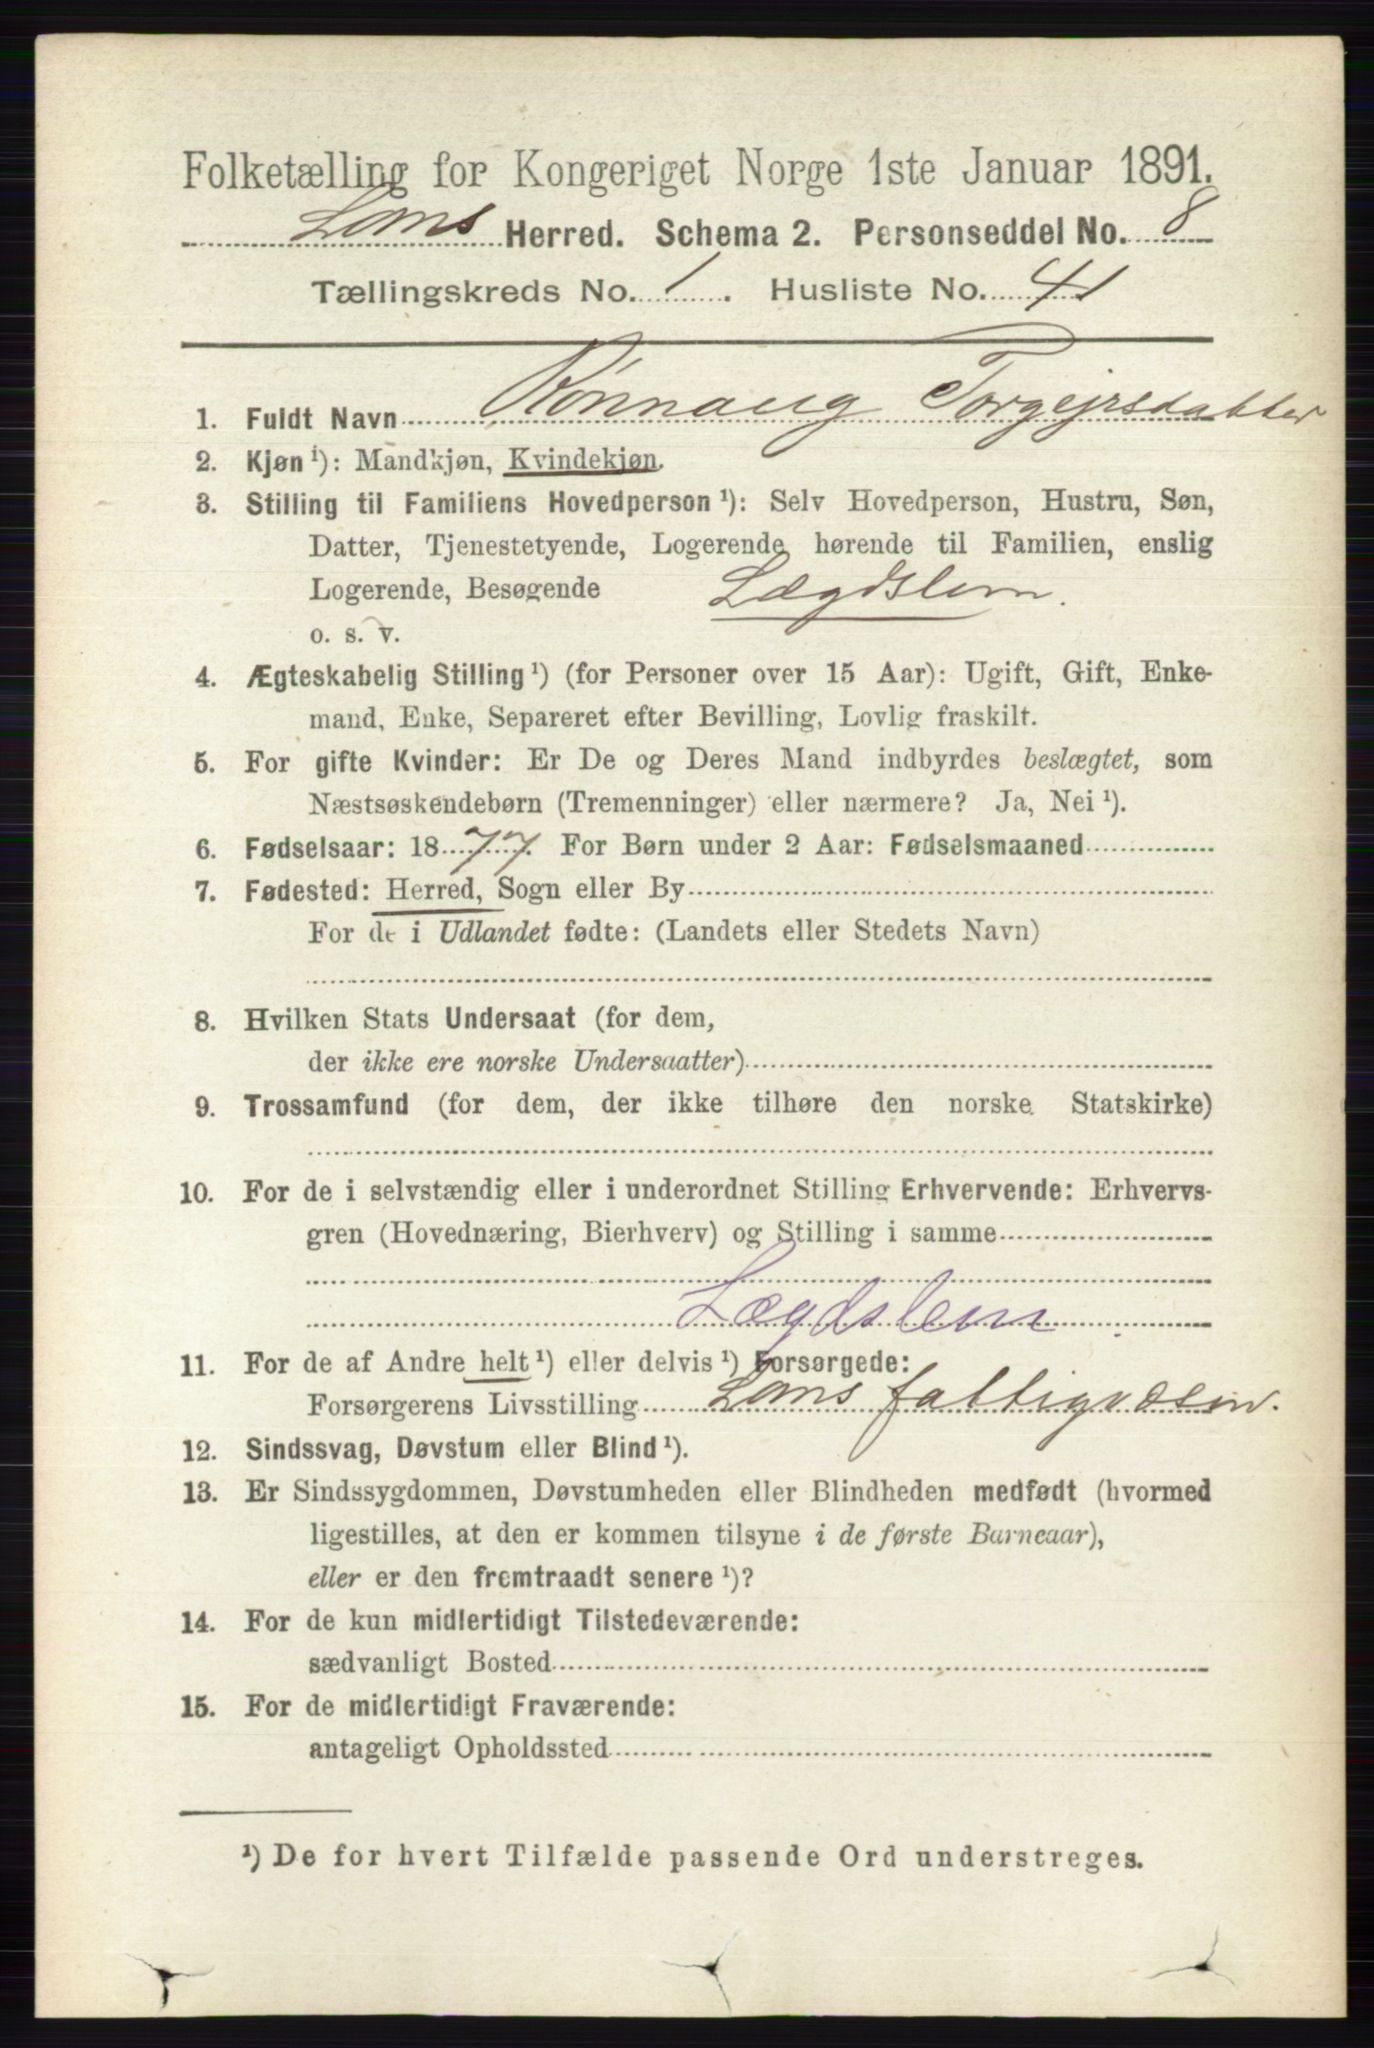 Folketælling for Kongeriget Norge 1ste Januar 1891.
Loms Herred. Schema 2. Personseddel No. 8
Tællingskreds No. 1. Husliste No. 41
1. Fuldt Navn Rønnaug Torgejrsdatter
2. Kjøn¹): Mandkjøn, Kvindekjøn.
3. Stilling til Familiens Hovedperson¹): Selv Hovedperson, Hustru, Søn,
Datter, Tjenestetyende, Logerende hørende til Familien, enslig
Logerende, Besøgende Lægdslem.
o. s. v.
4. Ægteskabelig Stilling¹) (for Personer over 15 Aar): Ugift, Gift, Enke-
mand, Enke, Separeret efter Bevilling, Lovlig fraskilt.
5. For gifte Kvinder: Er De og Deres Mand indbyrdes beslægtet, som
Næstsøskendebørn (Tremenninger) eller nærmere? Ja, Nei¹).
6. Fødselsaar: 1877. For Børn under 2 Aar: Fødselsmaaned
7. Fødested: Herred, Sogn eller By
For de i Udlandet fødte: (Landets eller Stedets Navn)
8. Hvilken Stats Undersaat (for dem,
der ikke ere norske Undersaatter)
9. Trossamfund (for dem, der ikke tilhøre den norske Statskirke)
10. For de i selvstændig eller i underordnet Stilling Erhvervende: Erhvervs-
gren (Hovednæring, Bierhverv) og Stilling i samme
Lægdslem
11. For de af Andre helt¹) eller delvis¹) Forsørgede:
Forsørgerens Livsstilling Loms fattigvæsen.
12. Sindssvag, Døvstum eller Blind¹).
13. Er Sindssygdommen, Døvstumheden eller Blindheden medfødt (hvormed
ligestilles, at den er kommen tilsyne i de første Barneaar),
eller er den fremtraadt senere¹)?
14. For de kun midlertidigt Tilstedeværende:
sædvanligt Bosted
15. For de midlertidigt Fraværende:
antageligt Opholdssted
¹) De for hvert Tilfælde passende Ord understreges.